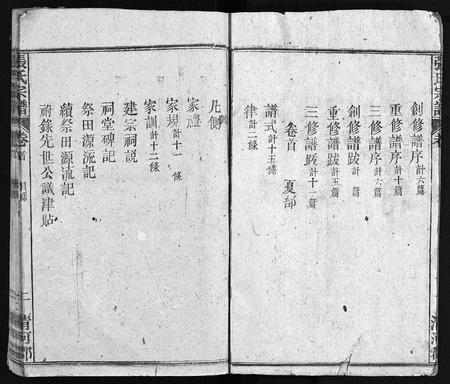 張氏宗譜 卷
創修譜序計六篇
重修譜序計十篇
三修譜序計六篇
創修譜跋計 篇
重修譜跋計五篇
三修譜跋計十一篇
卷首 夏部
譜式計十五條
律計二條
凡例
家禮
家規計十一條
家訓計十二條
建宗祠說
祠堂碑記
祭田源流記
續祭田源流記
祔錄先世公議津貼
張氏宗譜 卷首 目錄 二 清河郡
清河郡